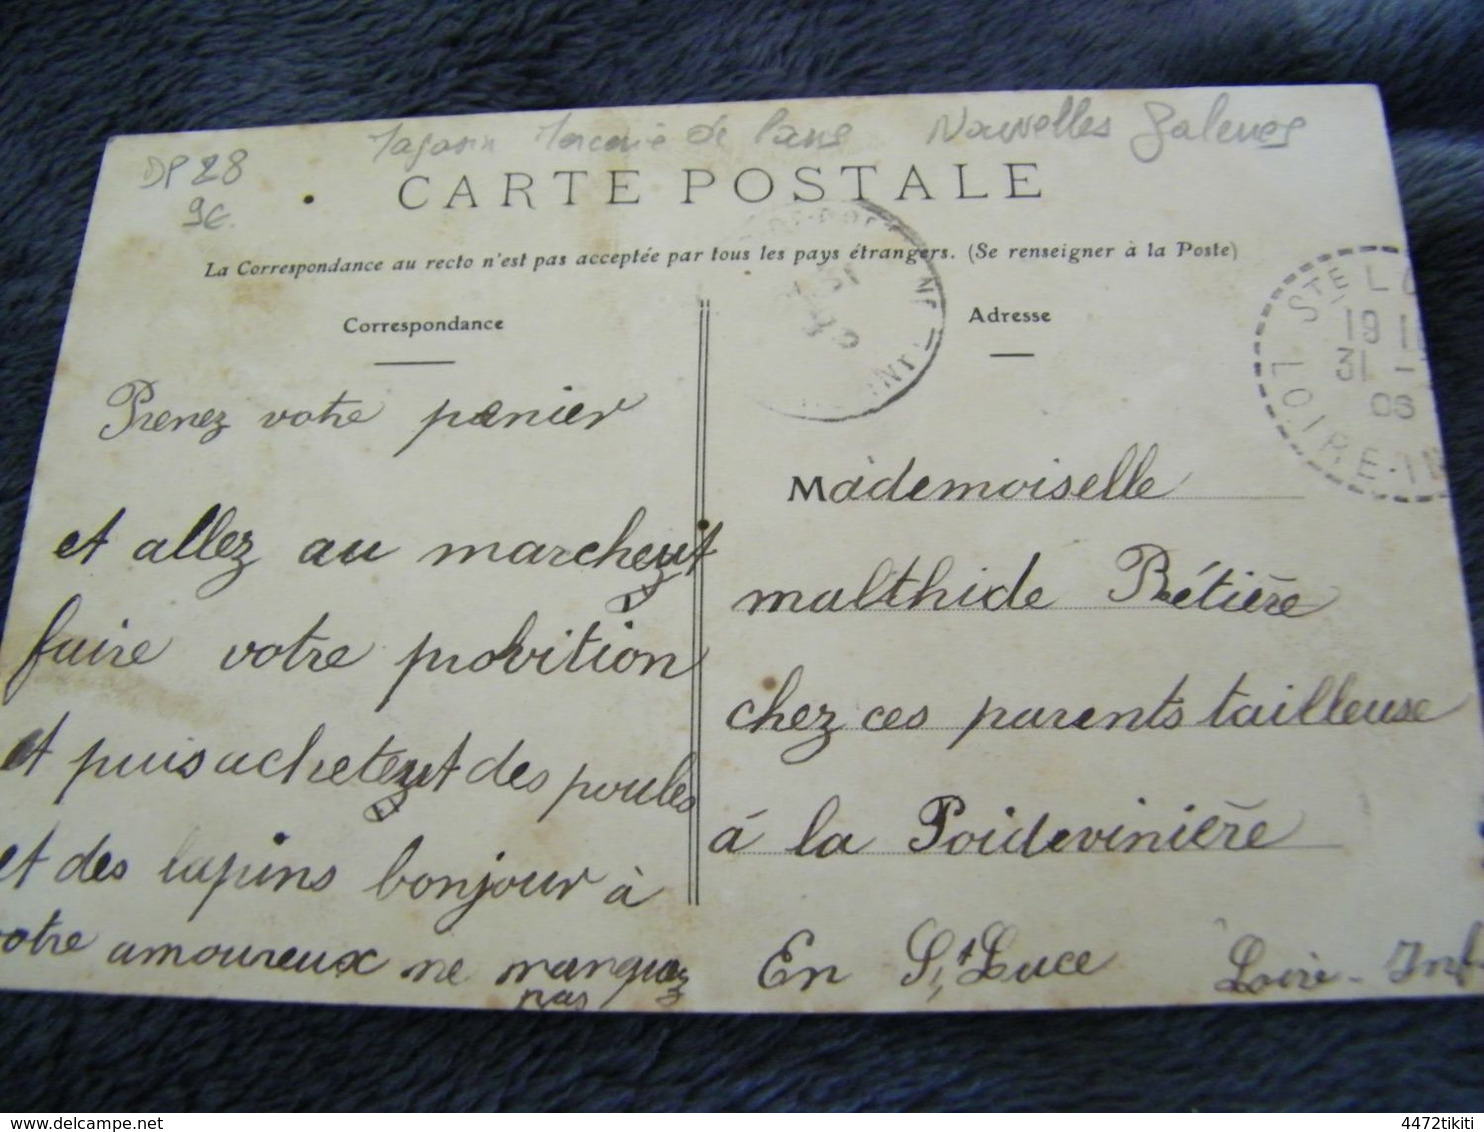 DP 28
9€.
Magasin Mercerie de Paris Nouvelles Galeries
CARTE POSTALE
La Correspondance au recto n'est pas acceptée par tous les pays étrangers. (Se renseigner à la Poste)
Correspondance
Prenez votre panier
et allez au marchezut
faire votre probvition
et puis achetezut des poules
et des lapins bonjour à
votre amoureux ne manquez
pas
Adresse
Mademoiselle
malthide Rétière
chez ces parents tailleuse
á la Poidevinière
En St Luce Loire-Inf
STE L
19
31 -
06
LOIRE-IN
INF
delcampe.net
4472tikiti